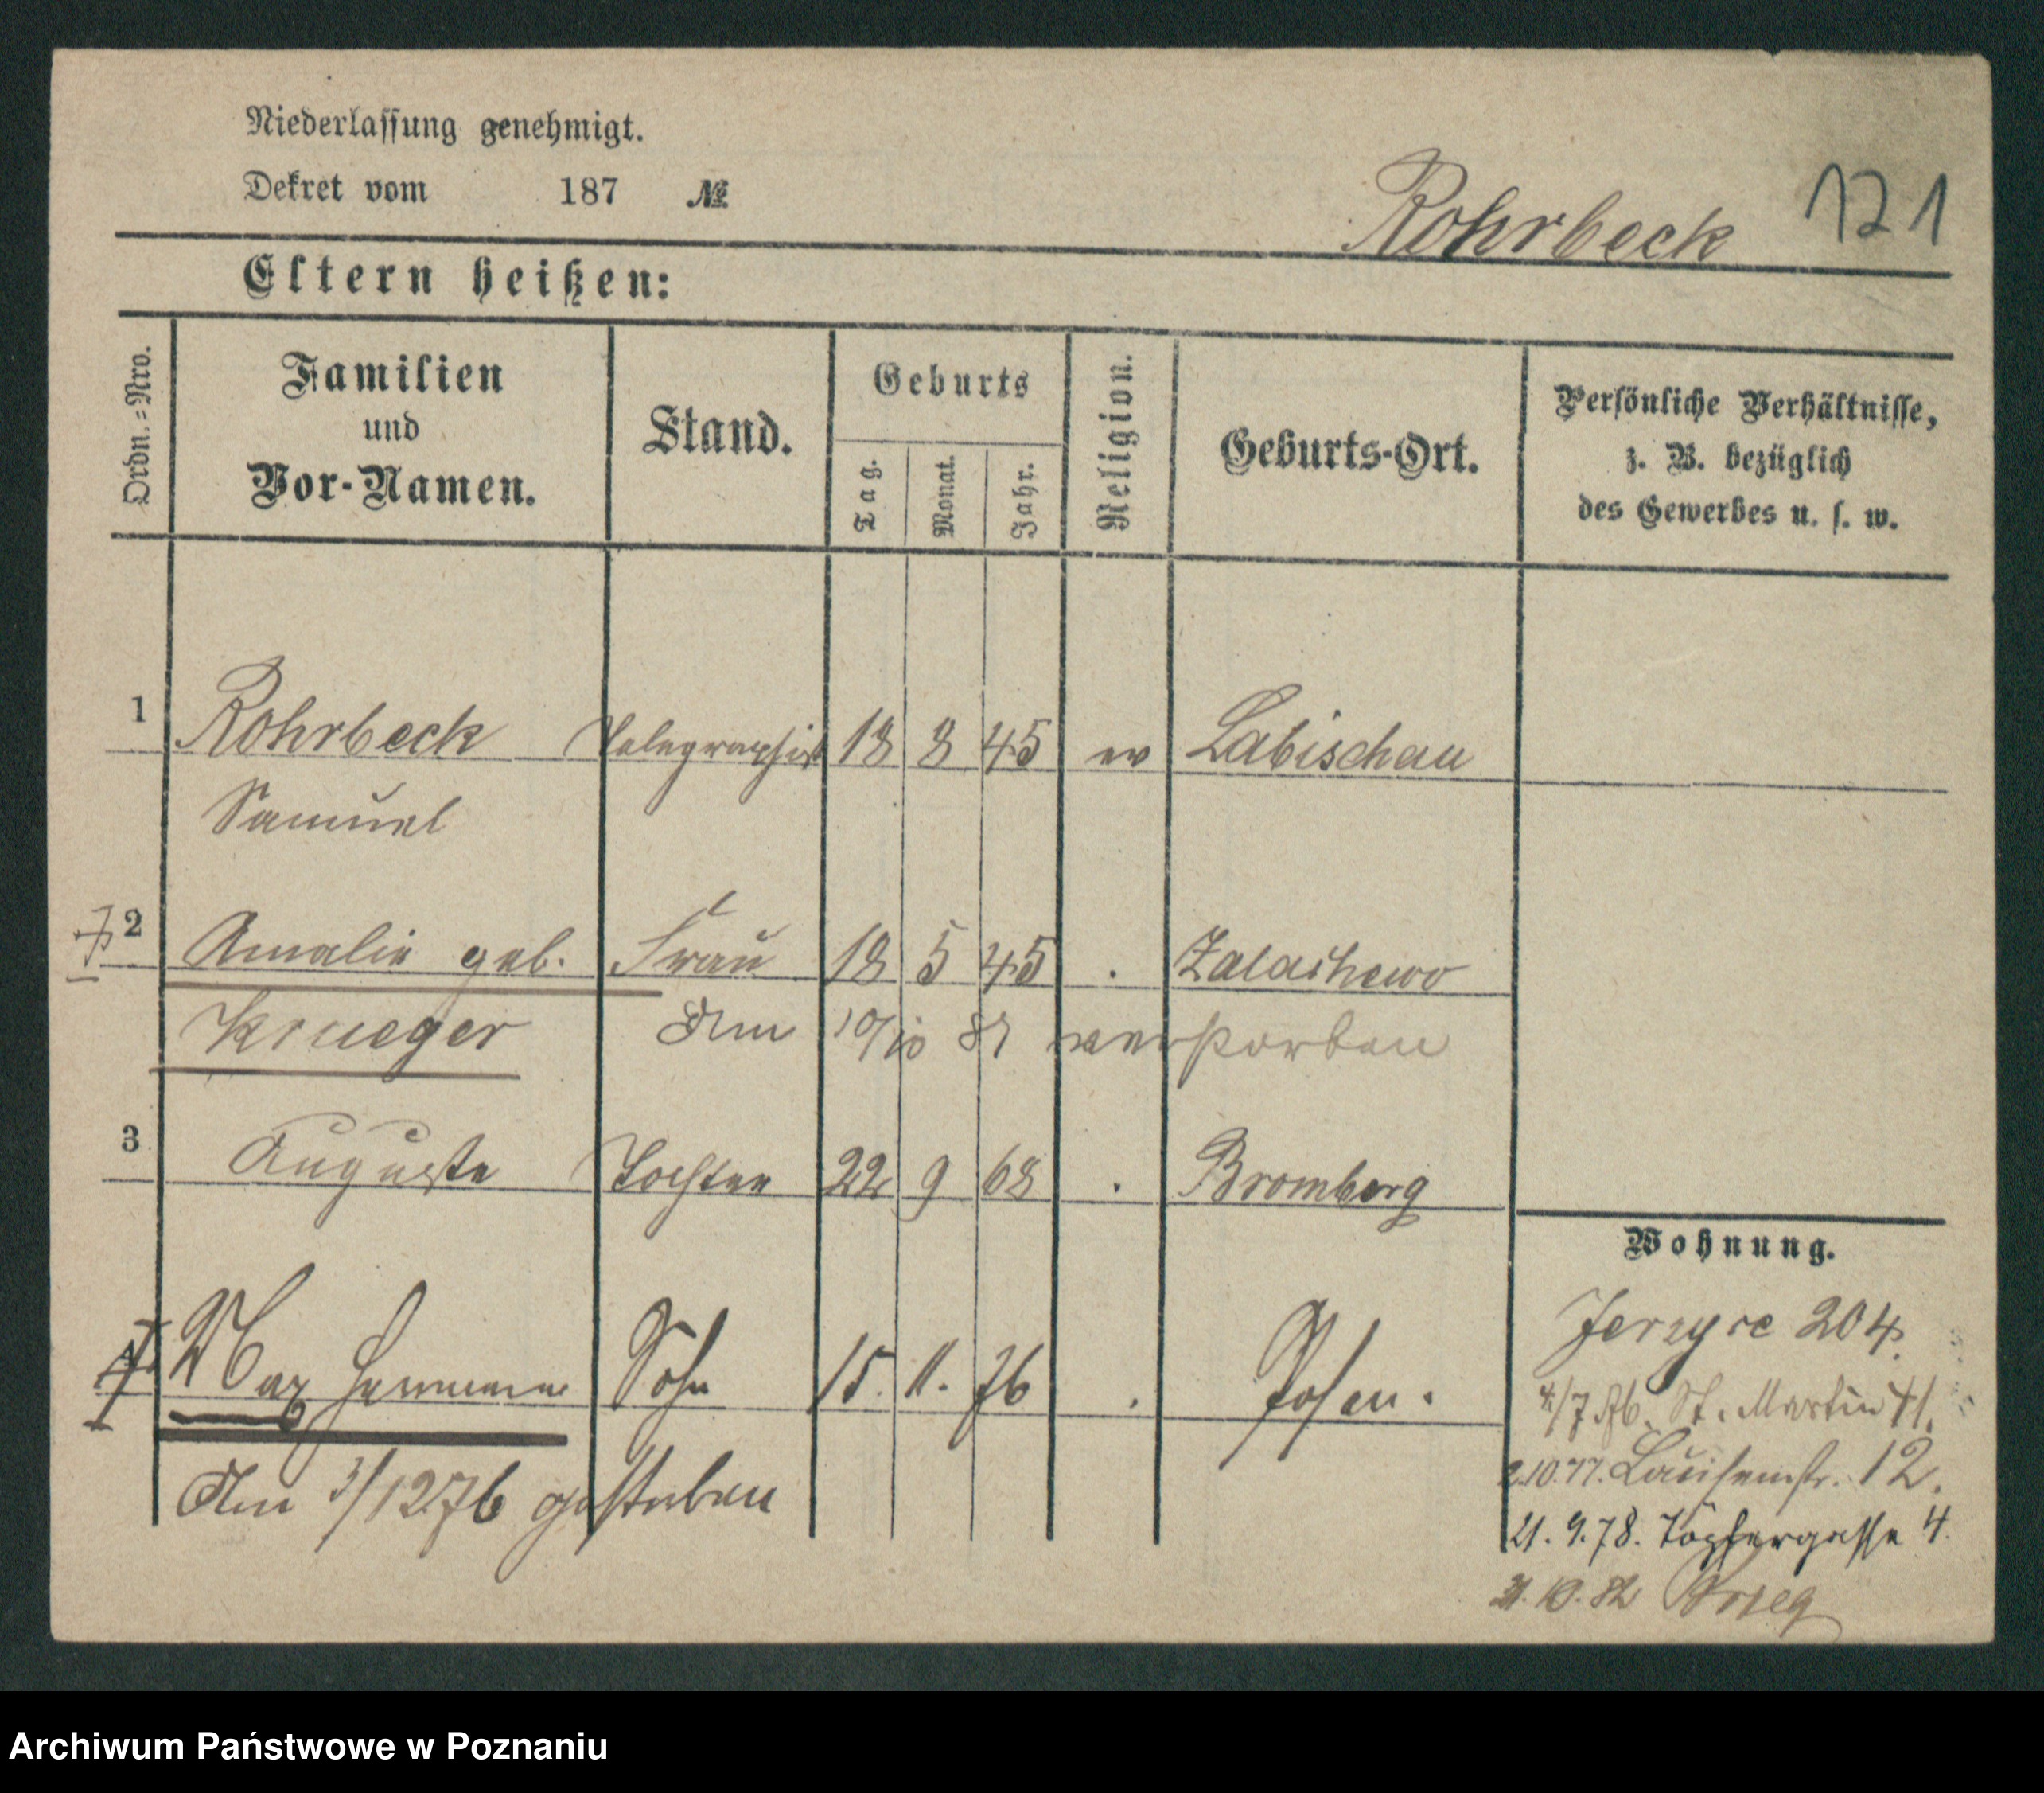 Niederlassung genehmigt.
Dekret vom 187 №
Rohrbeck 121
Eltern heißen:
Ordn.=Nro. Familien und Vor-Namen. Stand. Geburts Tag. Monat. Jahr. Religion. Geburts-Ort. Persönliche Verhältnisse, z. B. bezüglich des Gewerbes u. s. w.
1 Rohrbeck Telegraphist 18 8 45 ev Labischau
Samuel
2 Amalie geb. Frau 18 5 45 . Zalachowo
Krueger Am 10/10 81 verstorben
3 Auguste Tochter 22 9 68 . Bromberg
4 Max Hermann Sohn 15. 11. 76 . Posen.
Am 3/12 76 gestorben
Wohnung.
Jerzyce 204.
4/7 76. St. Martin 41.
2.10.77. Louisenstr. 12.
21.9.78. Töpfergasse 4.
Archiwum Państwowe w Poznaniu